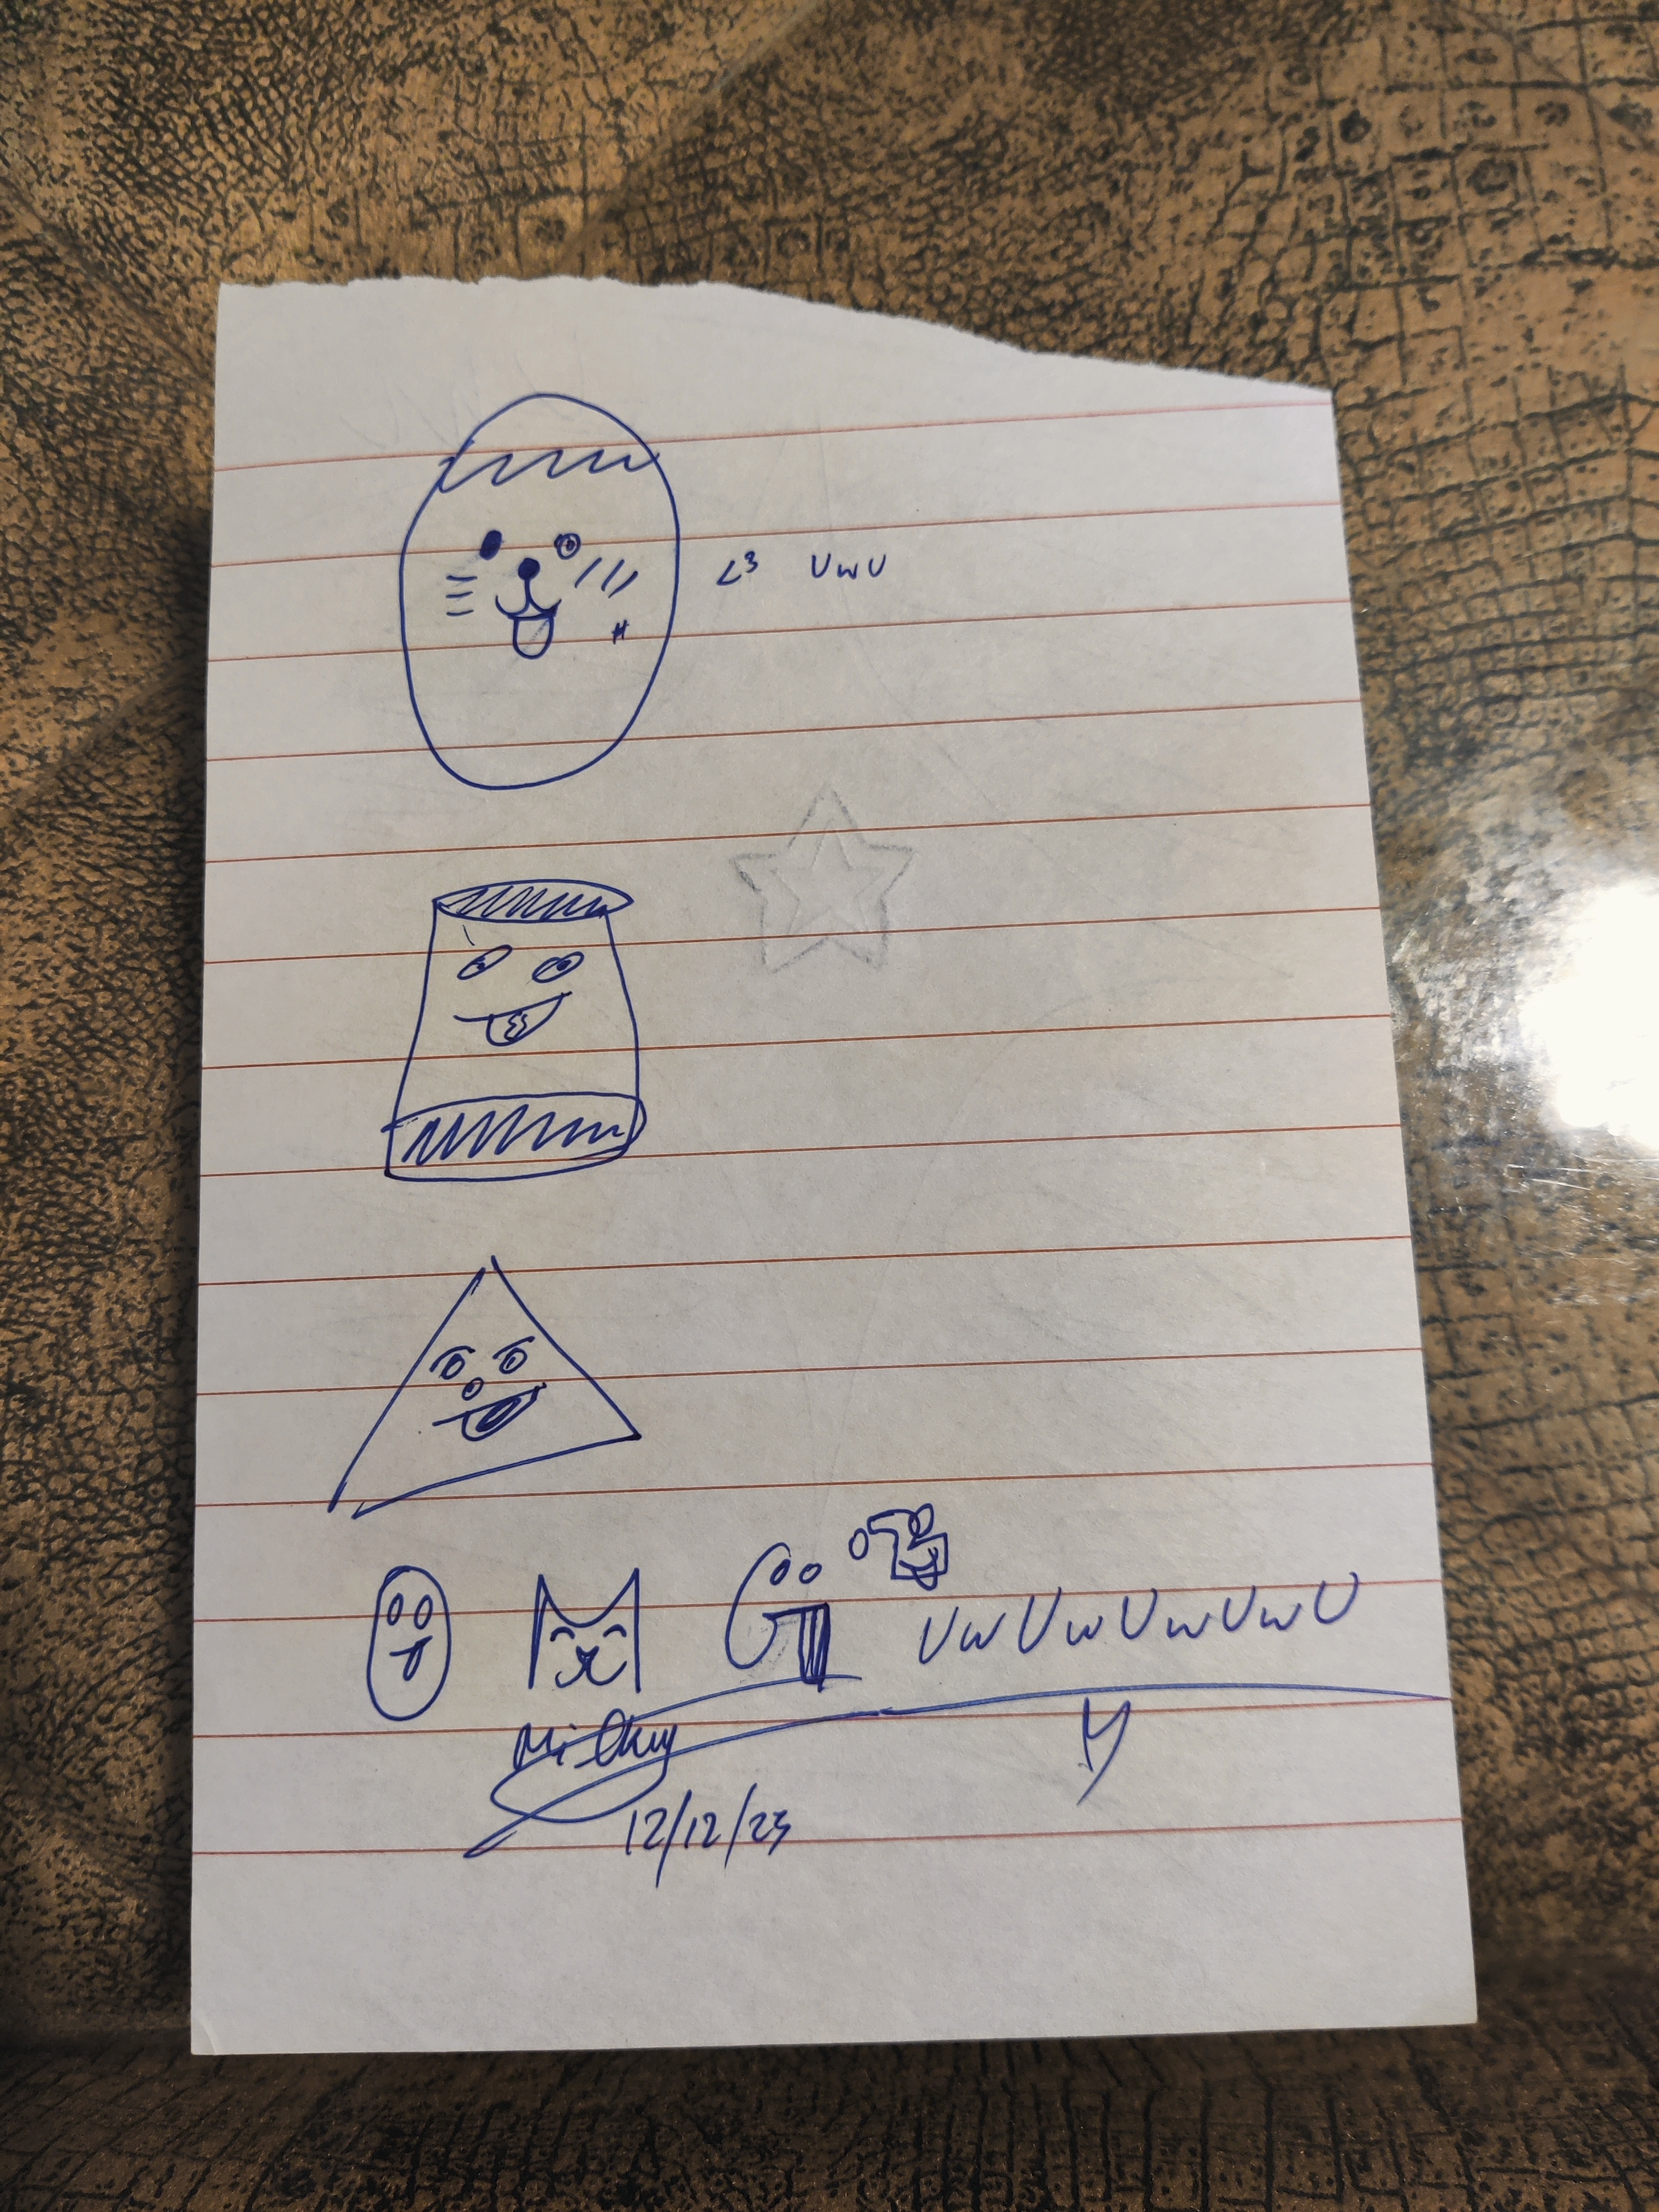 <3 UwU
UwUwUwUwU
Milky
12/12/23